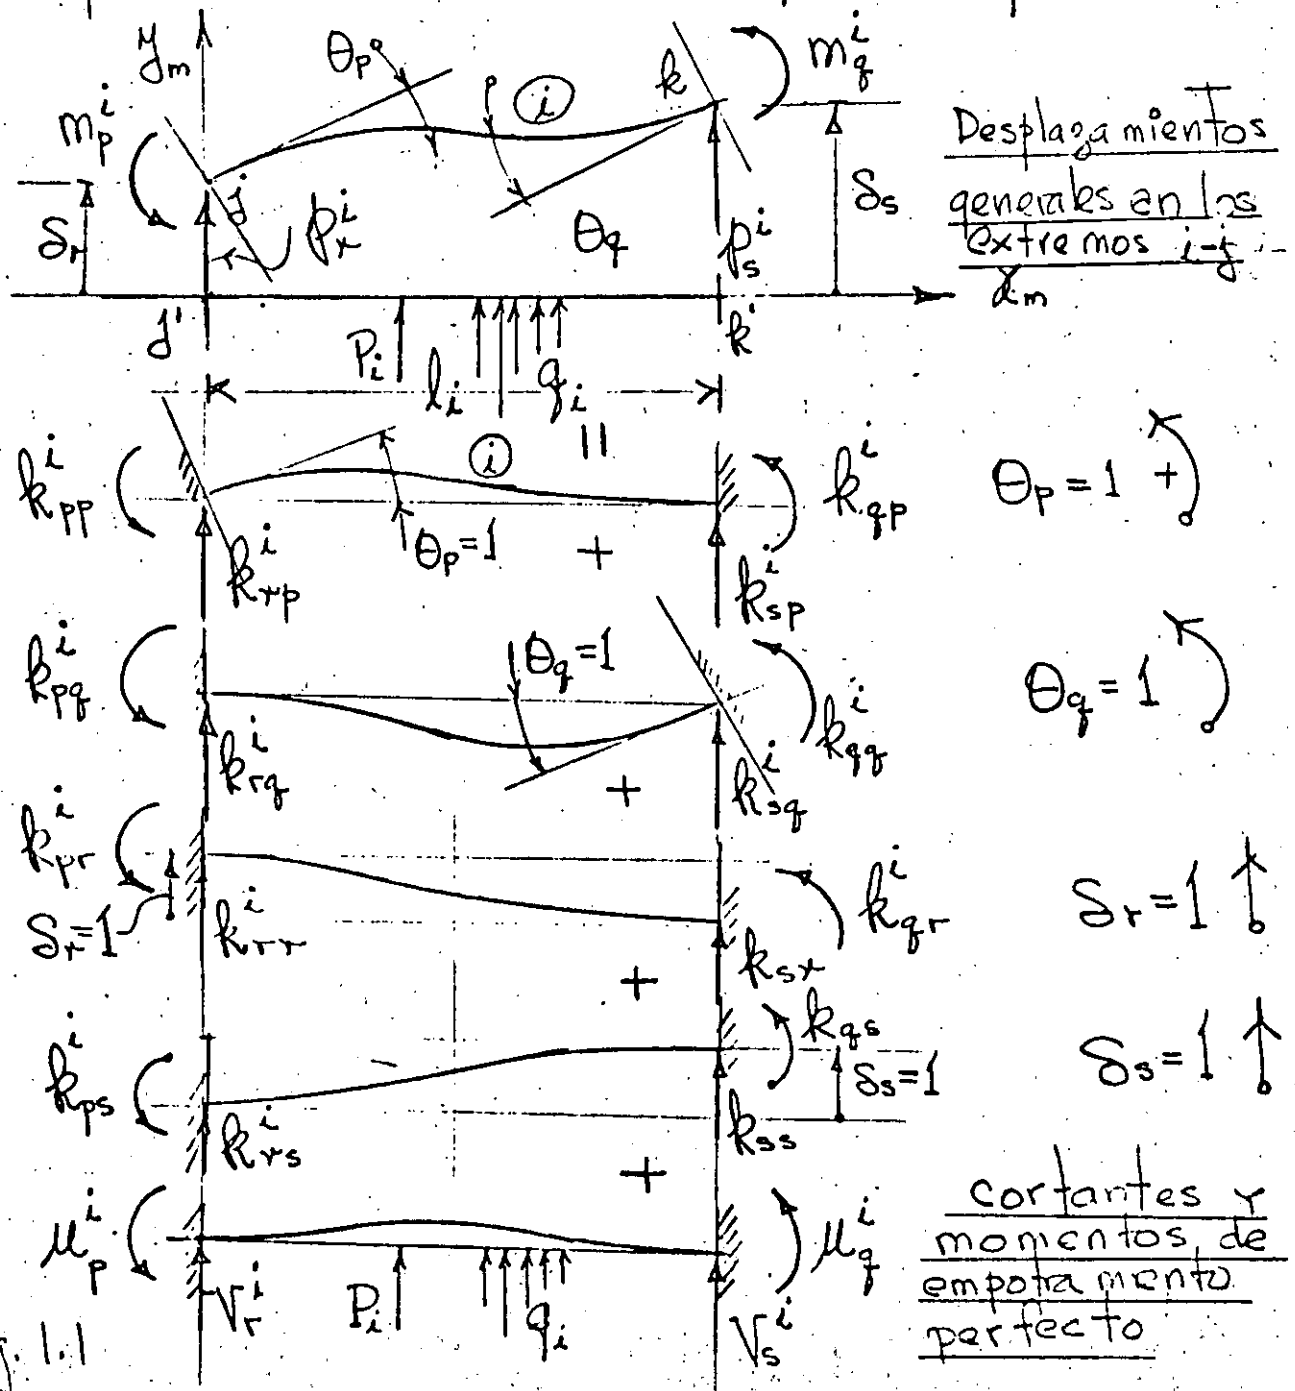 y_m
θ_p
i
k
m_q^i
m_p^i
Desplazamientos
generales en los
extremos i-j
δ_r
j
p_r^i
θ_q
p_s^i
δ_s
x_m
j'
P_i
l_i
q_i
k'
=
k_pp^i
i
k_qp^i
θ_p = 1 +
k_rp^i
θ_p=1
+
k_sp^i
k_pq^i
θ_q=1
k_qq^i
θ_q = 1
k_rq^i
+
k_sq^i
k_pr^i
δ_r=1
k_rr^i
k_qr^i
δ_r = 1
+
k_sr
k_ps^i
k_qs
δ_s=1
δ_s = 1
k_rs^i
+
k_ss
cortantes y
momentos de
empotramento
perfecto
μ_p^i
V_r^i
P_i
q_i
V_s^i
μ_q^i
g. 1.1